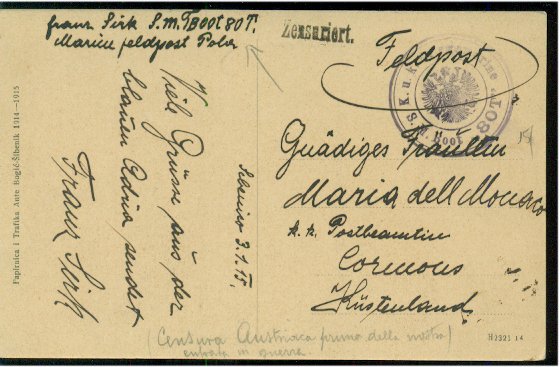 Franz Sirk S.M.TBOOT 80T.
Marine feldpost Pola
Zensuriert.
Feldpost
K. u. k. Kriegsmarine
S. M. Boot 80T
Viele Grüsse aus der
blauen Adria sendet
Franz Sirk
Sebenico 3.1.15.
Gnädiges Fräulein
Maria dell Monaco
k. k. Postbeamtin
Cormons
Küstenland
Papirnica i Trafika Ante Bogić-Šibenik 1914—1915
(Censura Austriaca prima della nostra)
entrata in guerra.
H2321 14